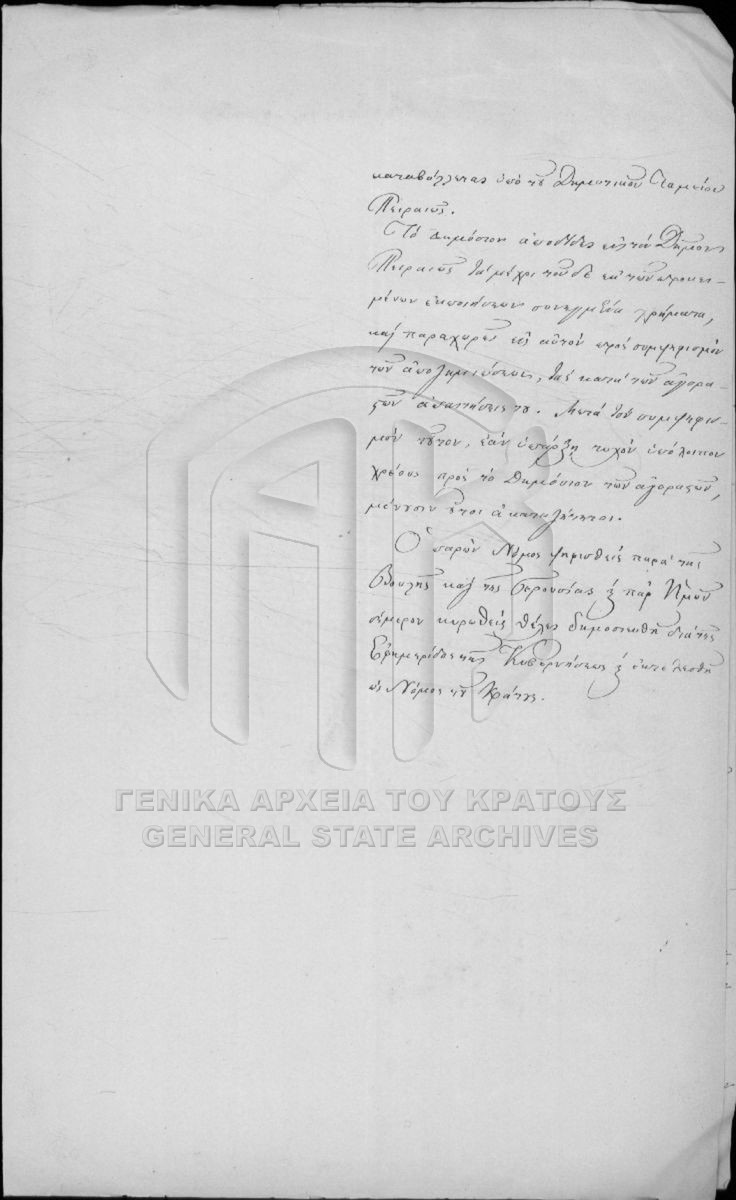 καταβάλλεται ὑπὸ τοῦ Δημοτικοῦ Ταμείου
Πειραιῶς.
Τὸ Δημόσιον ἀποδίδει εἰς τὸν Δῆμον
Πειραιῶς τὰ μέχρι τοῦδε ἐκ τῶν προκει-
μένων ἐκποιήσεων συνηγμένα χρήματα,
καὶ παραχωρεῖ εἰς αὐτὸν πρὸς συμψηφισμὸν
τῶν ἀποζημιώσεων, τὰς κατὰ τῶν ἀγορα-
στῶν ἀπαιτήσεις του. Μετὰ τὸν συμψηφισ-
μὸν τοῦτον, ἐὰν ὑπάρξῃ τυχὸν ὑπόλοιπον
χρέους πρὸς τὸ Δημόσιον τῶν ἀγοραστῶν,
μένουσιν οὗτοι ἀκαταζήτητοι.
Ὁ παρὼν Νόμος ψηφισθεὶς παρὰ τῆς
Βουλῆς καὶ τῆς Γερουσίας ϗ παρ' Ἡμῶν
σήμερον κυρωθεὶς θέλει δημοσιευθῆ διὰ τῆς
Ἐφημερίδος τῆς Κυβερνήσεως ϗ ἐκτελεσθῆ
ὡς Νόμος τοῦ Κράτους.
ΓΕΝΙΚΑ ΑΡΧΕΙΑ ΤΟΥ ΚΡΑΤΟΥΣ
GENERAL STATE ARCHIVES